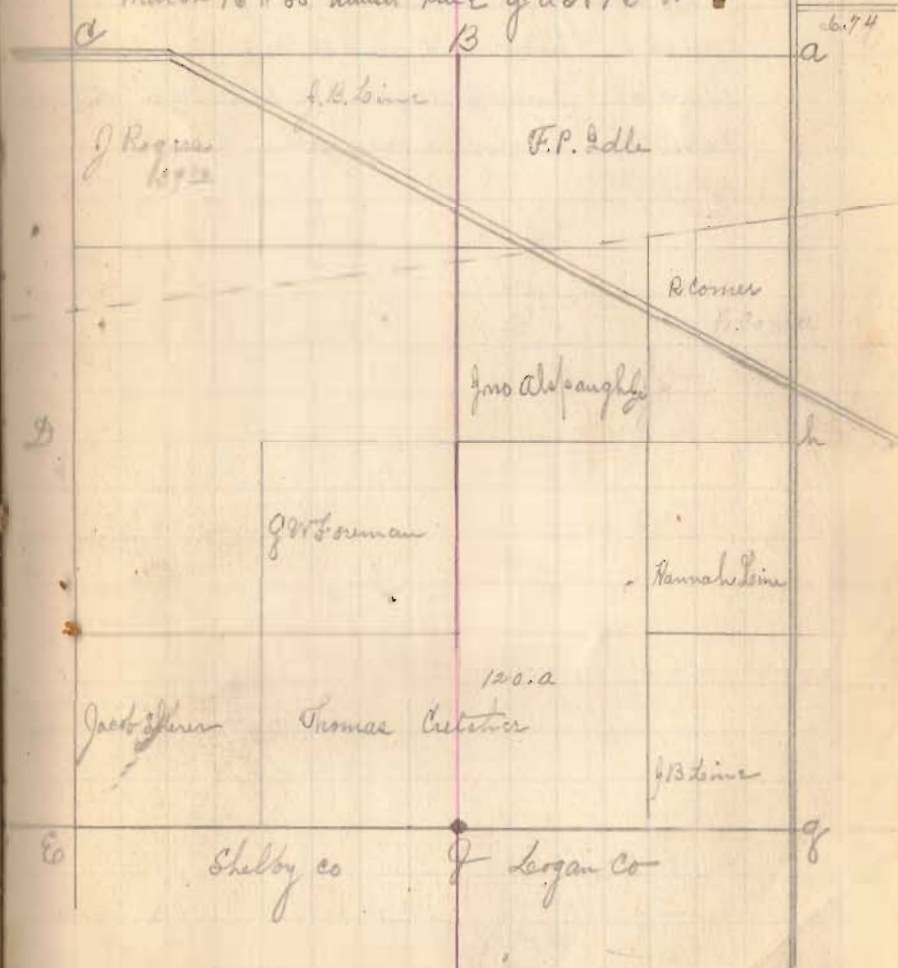 6.74
C B a
J.B. Line
F.P. Idle
J Rogers
R Comer
Jno Alspaugh
D h
G W Foreman
Hannah Line
120.a
Jacob Sherer Thomas Cretcher
J B Line
E J g
Shelby co Logan Co